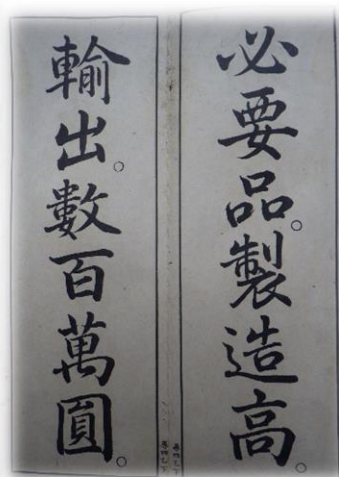 必要品。製造高。
輸出。數百萬圓。